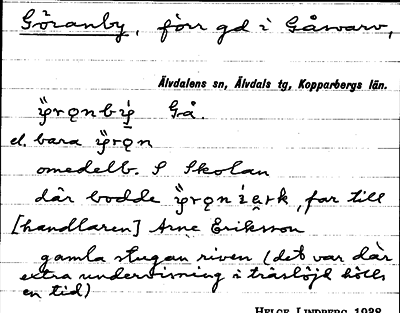 Göranby, förr gd i Gåsvarv,
Älvdalens sn, Älvdals tg, Kopparbergs län.
Gå.
el. bara
omedelb. S Skolan
där bodde , far till
[handlaren] Arne Eriksson
gamla stugan riven (det var där
extra undervisning i träslöjd hölls
en tid)
HELGE LINDBERG 1928